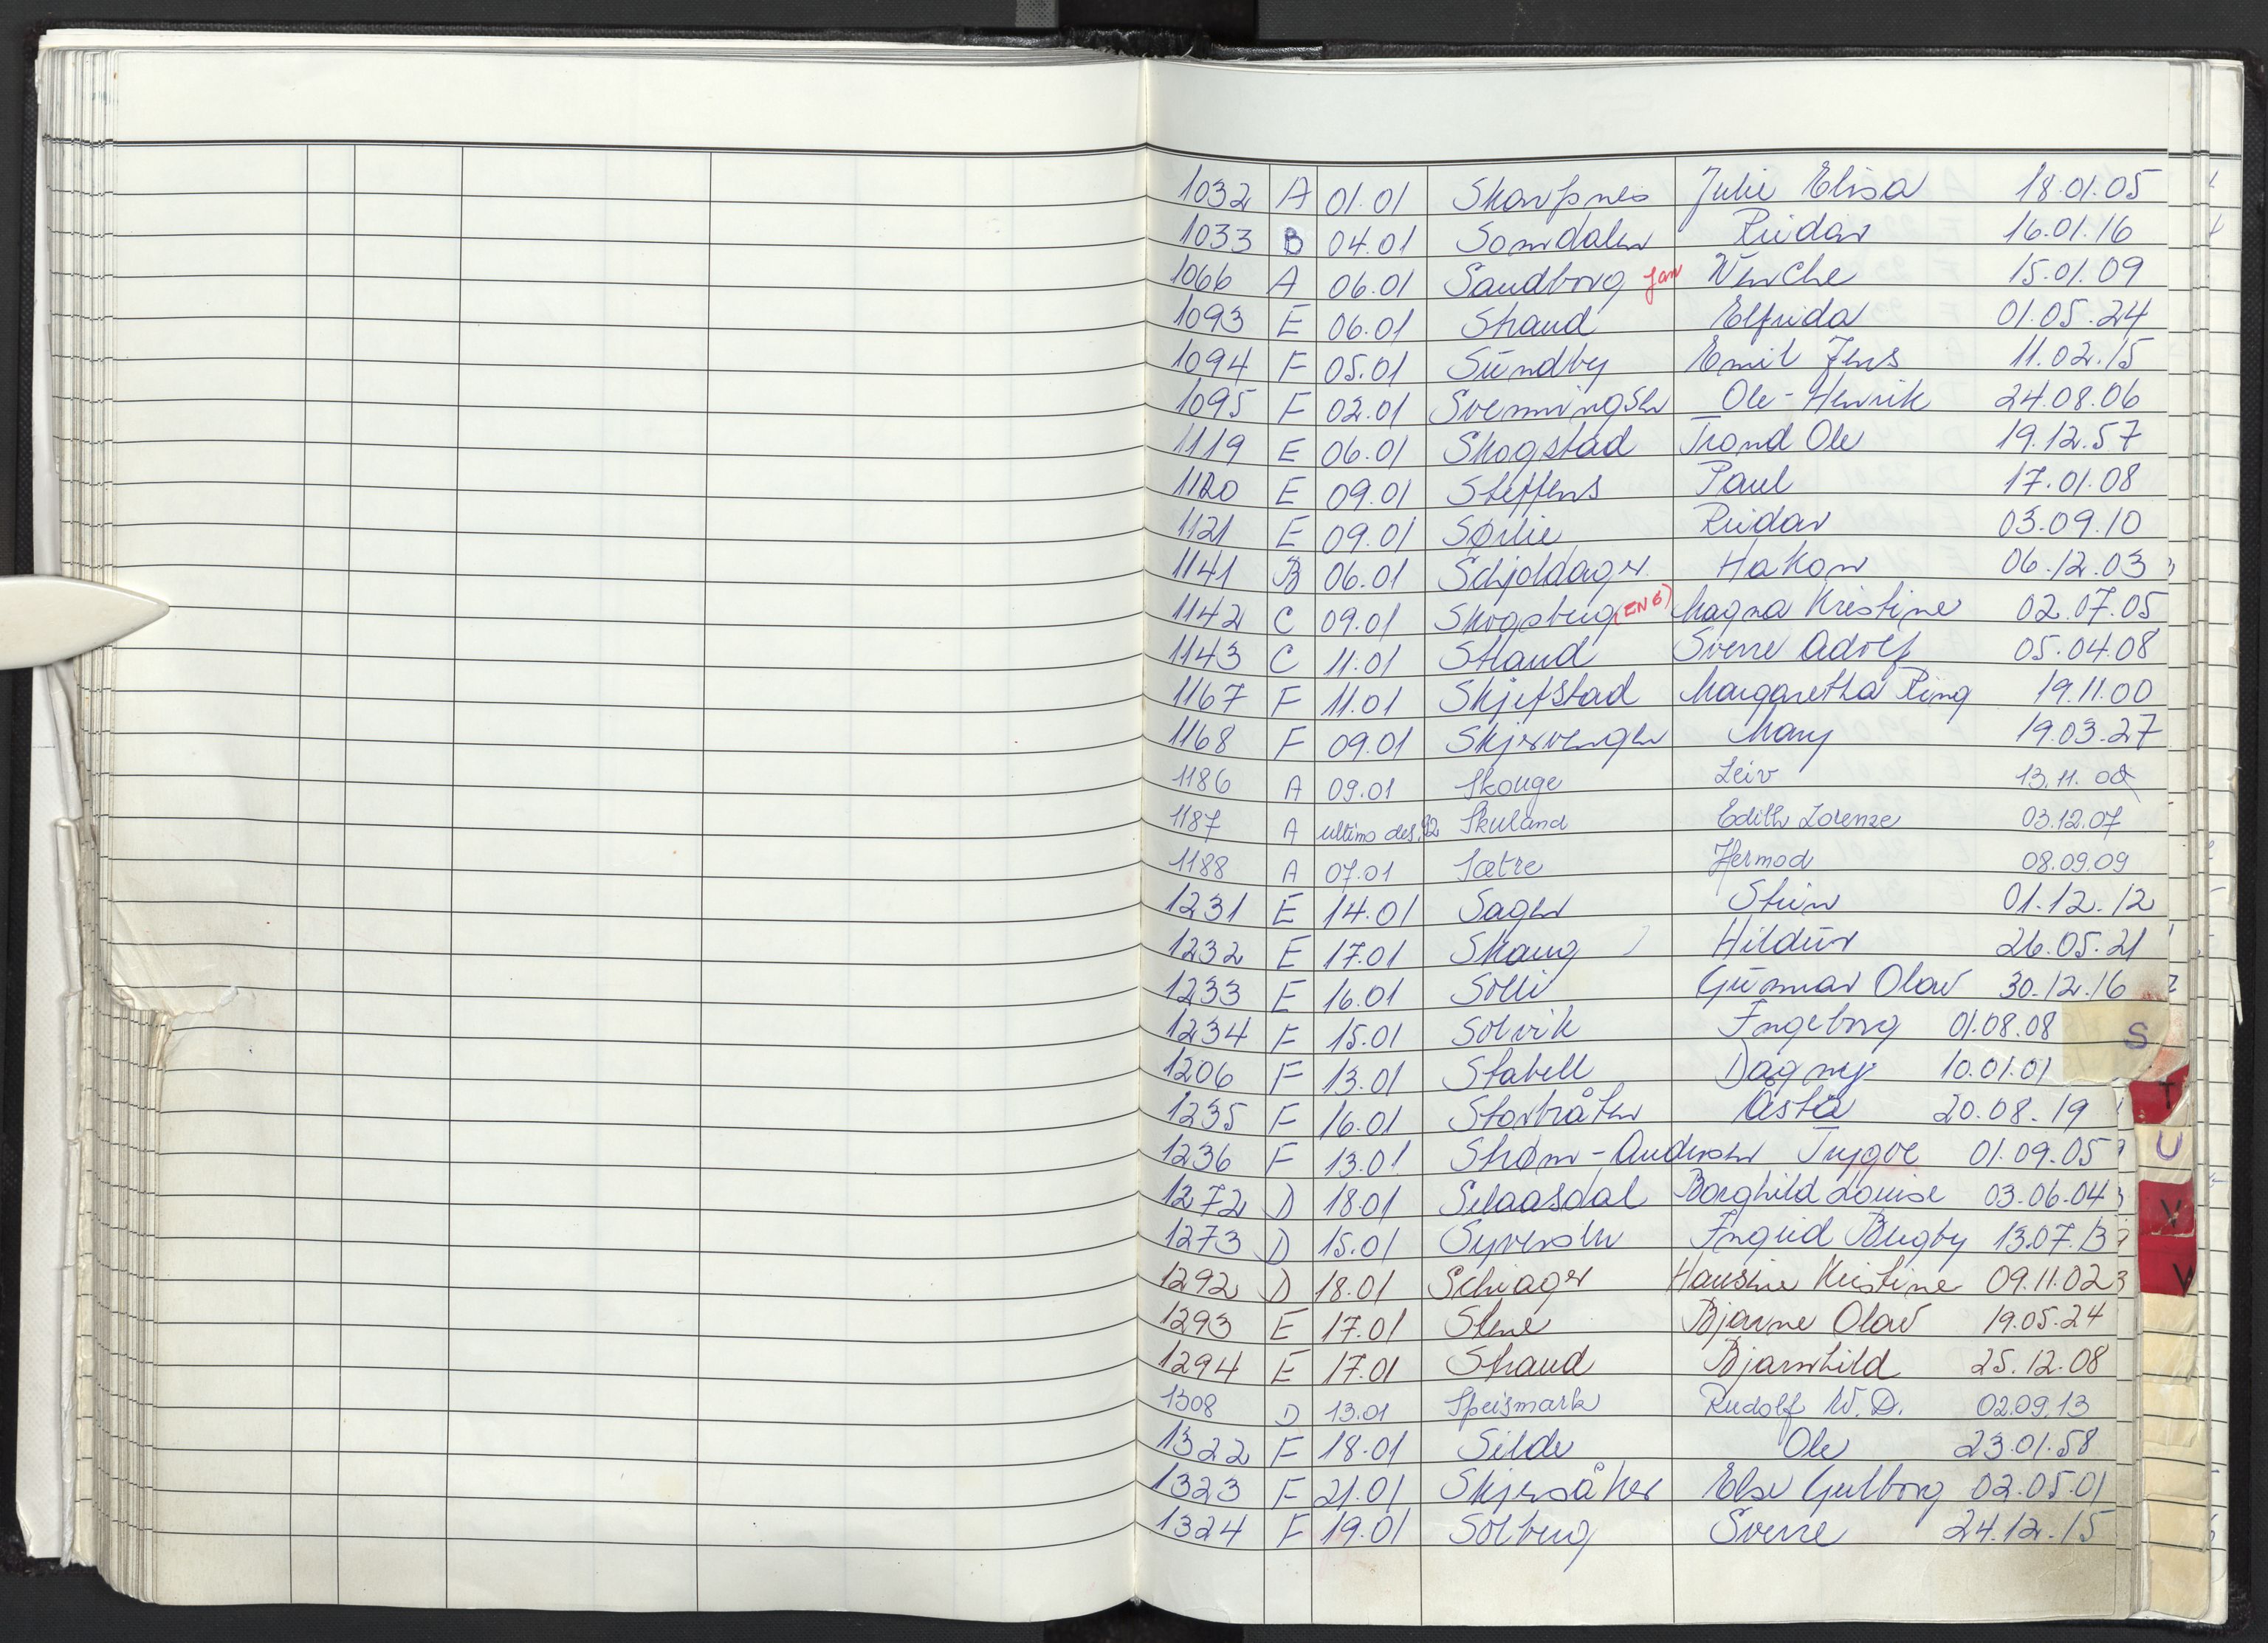 1032 A 01.01 Skarpnes Julie Elisa 18.01.05
1033 B 04.01 Somdalen Reidar 16.01.16
1066 A 06.01 Sandborg Jan Wenche 15.01.09
1093 E 06.01 Strand Elfrida 01.05.24
1094 F 05.01 Sundby Emil Jens 11.02.15
1095 F 02.01 Svenningsen Ole-Henrik 24.08.06
1119 E 06.01 Skogstad Trond Ole 19.12.57
1120 E 09.01 Steffens Paul 17.01.08
1121 E 09.01 Sørlie Reidar 03.09.10
1141 B 06.01 Schjoldager Hakon 06.12.03
1142 C 09.01 Skogsberg (ENG) Magna Kristine 02.07.05
1143 C 11.01 Strand Sverre Adolf 05.04.08
1167 F 11.01 Skjefstad Margaretha Ring 19.11.00
1168 F 09.01 Skjervengen Mary 19.03.27
1186 A 09.01 Skouge Leiv 13.11.02
1187 A ultimo des.92 Skuland Edith Lorenze 03.12.07
1188 A 07.01 Sætre Hermod 08.09.09
1231 E 14.01 Sagen Stein 01.12.12
1232 E 17.01 Skaug Hildur 26.05.21
1233 E 16.01 Solli Gunnar Olav 30.12.16
1234 F 15.01 Solvik Ingeborg 01.08.08
S
1206 F 13.01 Stabell Dagny 10.01.01
T
1235 F 16.01 Storbråten Åsta 20.08.19
1236 F 13.01 Strøm-Andersen Trygve 01.09.05
U
1272 D 18.01 Selaasdal Borghild Louise 03.06.04
V
1273 D 15.01 Syversen Ingrid Bergby 13.07.13
1292 D 18.01 Schiager Hansine Kristine 09.11.02
1293 E 17.01 Stene Bjarne Olav 19.05.24
1294 E 17.01 Strand Bjarnhild 25.12.08
1308 D 13.01 Speismark Rudolf W.D. 02.09.13
1322 F 18.01 Silde Ole 23.01.58
1323 F 21.01 Skjersåker Else Gulborg 02.05.01
1324 F 19.01 Solberg Sverre 24.12.15